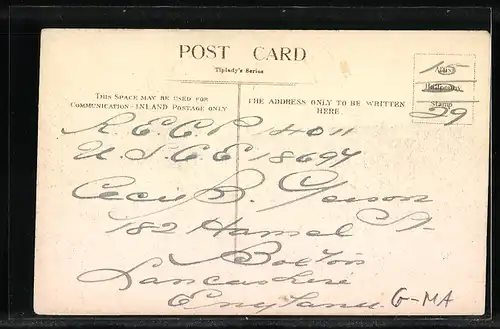 POST CARD
Tiplady's Series
THIS SPACE MAY BE USED FOR
COMMUNICATION - INLAND POSTAGE ONLY
THE ADDRESS ONLY TO BE WRITTEN
HERE.
Stamp
15
29
R. E. C. P. 14011
U. S. C. E 18697
Cecil B.
182 St.
Bolton
Lancashire
England.
G-MA